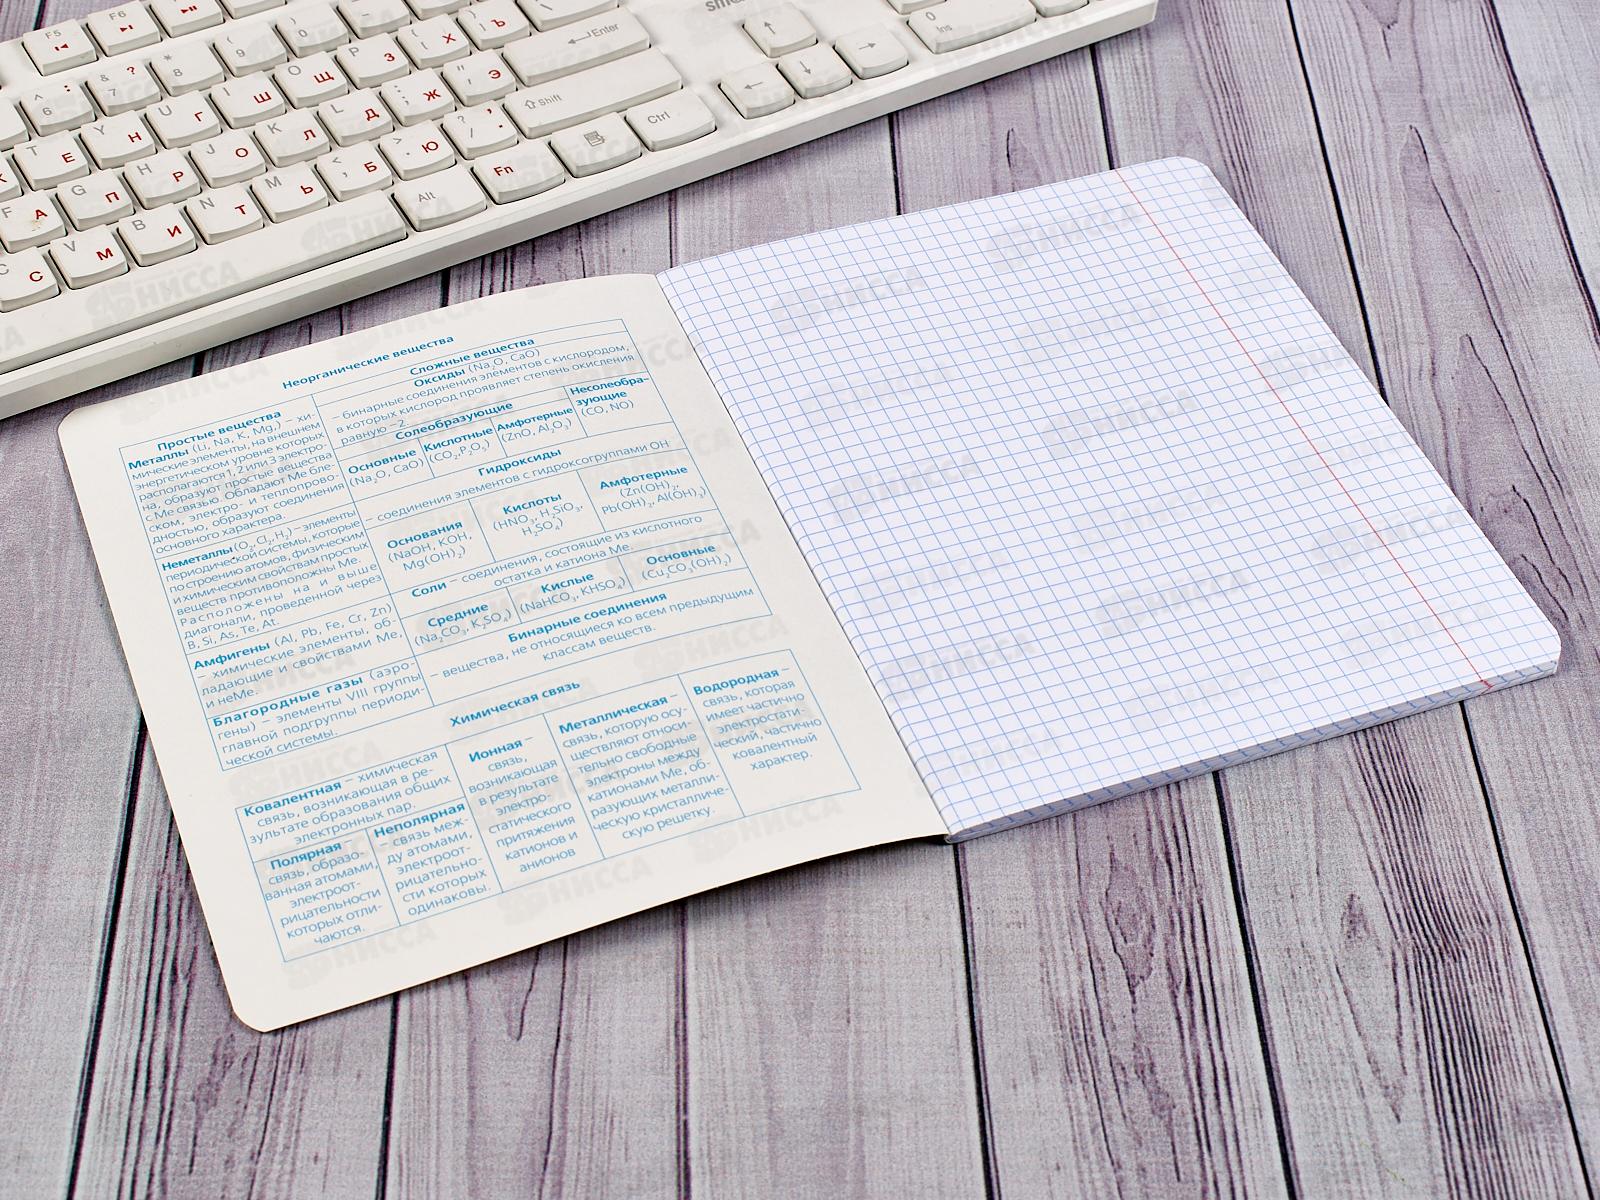 Неорганические вещества
Простые вещества
Металлы (Li, Na, K, Mg,) – хи-
мические элементы, на внешнем
энергетическом уровне которых
располагаются 1, 2 или 3 электро-
на, образуют простые вещества
с Ме связью. Обладают Ме бле-
ском, электро- и теплопрово-
дностью, образуют соединения
основного характера.
Неметаллы (O₂, Cl₂, H₂) – элементы
периодической системы, которые
по строению атомов, физическим
и химическим свойствам простых
веществ противоположны Ме.
Расположены на и выше
диагонали, проведенной через
B, Si, As, Te, At.
Амфигены (Al, Pb, Fe, Cr, Zn)
– химические элементы, об-
ладающие и свойствами Ме,
и неМе.
Благородные газы (аэро-
гены) – элементы VIII группы
главной подгруппы периоди-
ческой системы.
Сложные вещества
Оксиды (Na₂O, CaO)
– бинарные соединения элементов с кислородом,
в которых кислород проявляет степень окисления
равную –2.
Солеобразующие
Несолеобра-
зующие
(CO, NO)
Основные
(Na₂O, CaO)
Кислотные
(CO₂, P₂O₅)
Амфотерные
(ZnO, Al₂O₃)
Гидроксиды
– соединения элементов с гидроксогруппами OH⁻
Основания
(NaOH, KOH,
Mg(OH)₂)
Кислоты
(HNO₃, H₂SiO₃,
H₂SO₄)
Амфотерные
(Zn(OH)₂,
Pb(OH)₂, Al(OH)₃)
Соли – соединения, состоящие из кислотного
остатка и катиона Ме.
Средние
(Na₂CO₃, K₂SO₄)
Кислые
(NaHCO₃, KHSO₄)
Основные
(Cu₂CO₃(OH)₂)
Бинарные соединения
– вещества, не относящиеся ко всем предыдущим
классам веществ.
Химическая связь
Ковалентная – химическая
связь, возникающая в ре-
зультате образования общих
электронных пар.
Полярная –
связь, образо-
ванная атомами,
электроот-
рицательности
которых отли-
чаются.
Неполярная
– связь меж-
ду атомами,
электроот-
рицательно-
сти которых
одинаковы.
Ионная –
связь,
возникающая
в результате
электро-
статического
притяжения
катионов и
анионов
Металлическая –
связь, которую осу-
ществляют относи-
тельно свободные
электроны между
катионами Ме, об-
разующих металли-
ческую кристалличе-
скую решетку.
Водородная –
связь, которая
имеет частично
электростати-
ческий, частично
ковалентный
характер.
F5 F6
Enter
Shift
Ctrl
Alt
Fn
0
Ins
НИССА